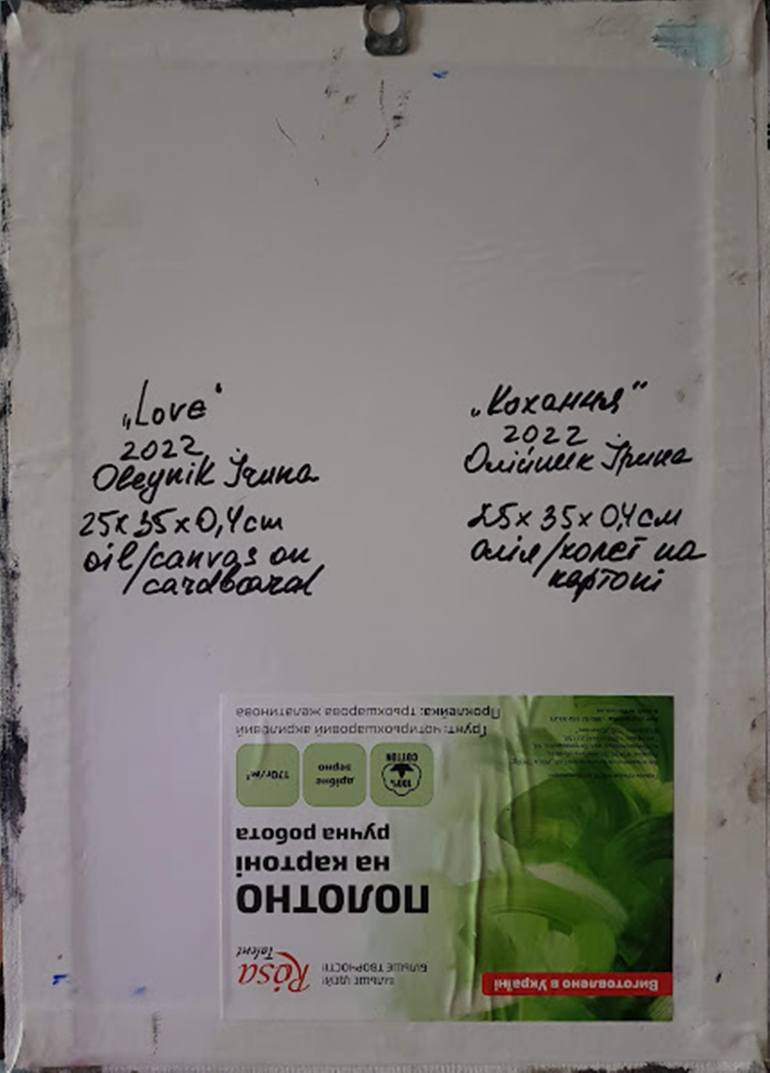 „Love“
2022
Oleynik Iryna
25x35x0,4cm
oil/canvas on
cardboard
„Кохання“
2022
Олійник Ірина
25x35x0,4см
олія/холст на
картоні
Виготовлено в Україні
Rosa
Talent
БІЛЬШЕ ІДЕЙ!
БІЛЬШЕ ТВОРЧОСТІ!
ПОЛОТНО
на картоні
ручна робота
100%
COTTON
дрібне
зерно
170г/м²
Ґрунт: чотирьохшаровий акриловий
Проклейка: трьохшарова желатинова